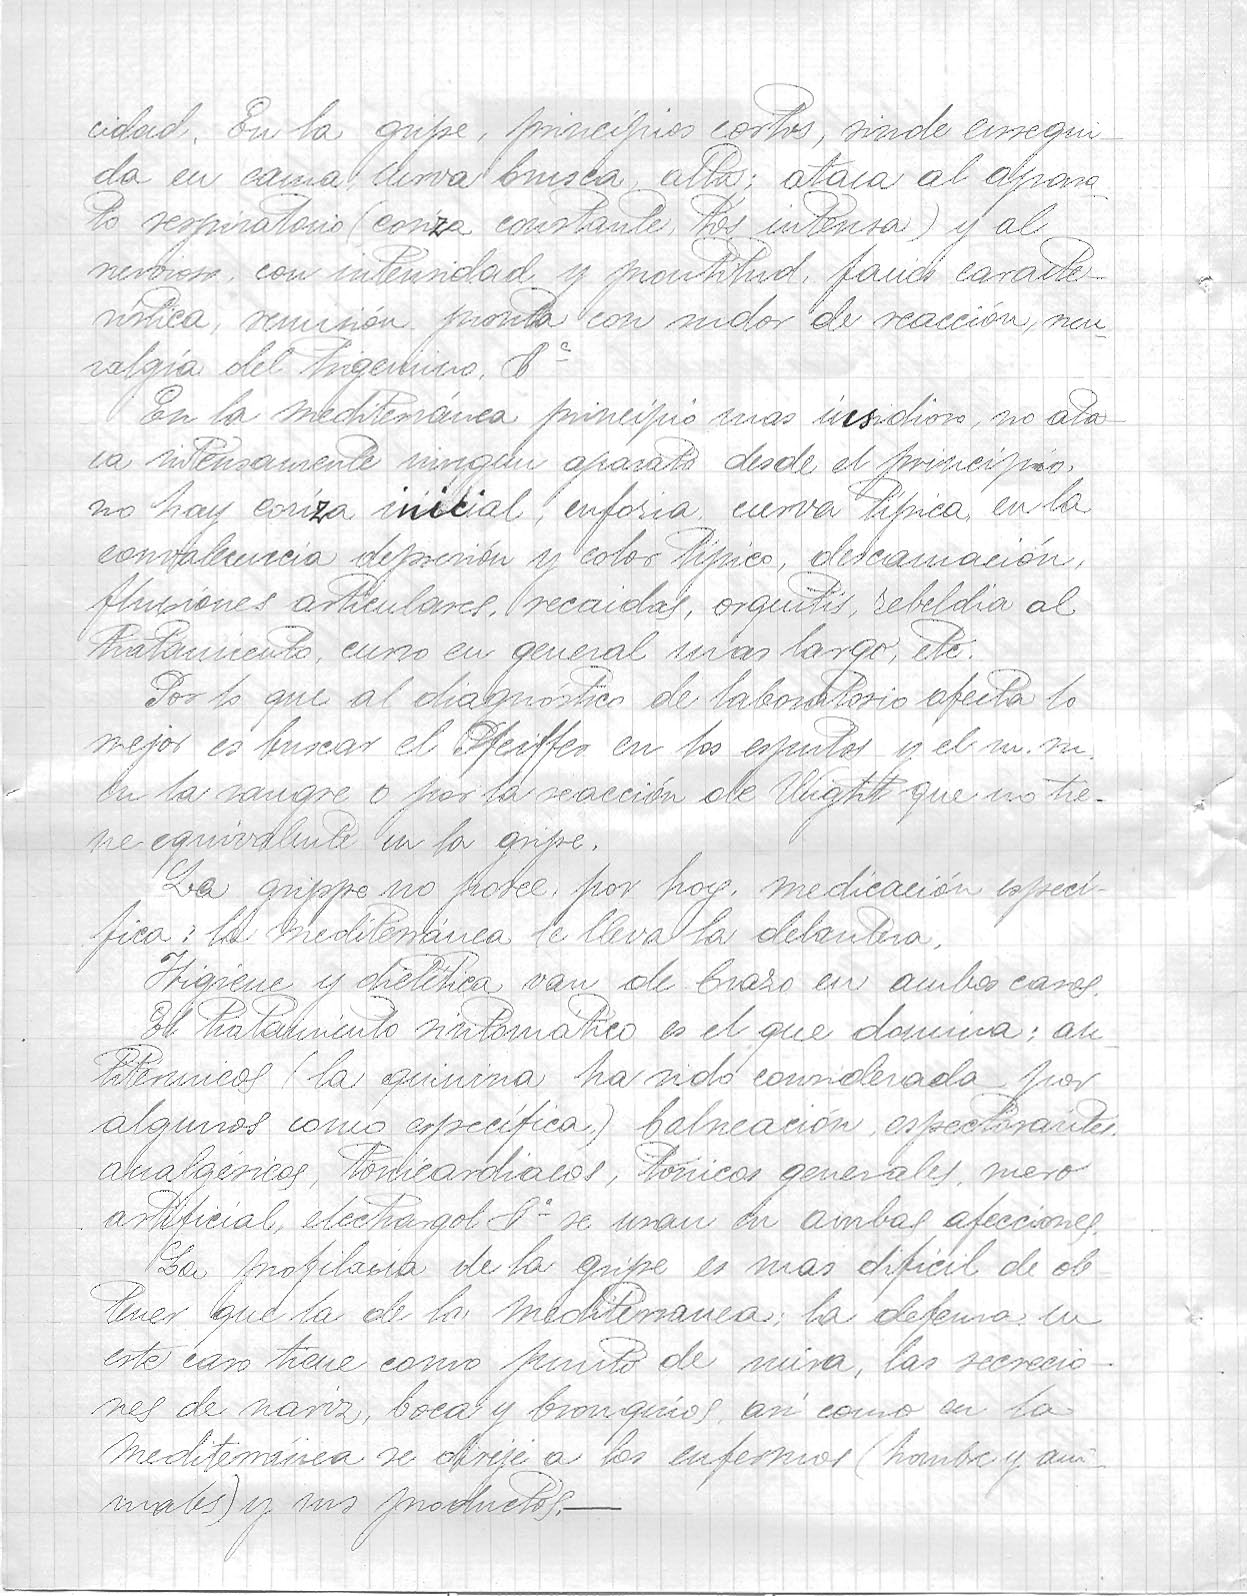 cidad. En la gripe, principios cortos, rinde ensegui-
da en cama, curva brusca, alta; ataca al apara-
to respiratorio (coriza constante, tos intensa) y al
nervioso, con intensidad y prontitud, facies caracte-
rística, remisión pronta con sudor de reacción, neu-
ralgia del trigemino, &ª
En la mediterránea principio mas insidioso, no ata-
ca intensamente ningun aparato desde el principio,
no hay coriza inicial, euforia, curva típica, en la
convalecencia depresión y color típico, descamación,
fluxiones articulares, recaidas, orquitis, rebeldia al
tratamiento, curso en general mas largo, etc.
Por lo que al diagnostico de laboratorio afecta lo
mejor es buscar el Pfeiffer en los esputos y el m. m.
en la sangre o por la reacción de Wright que no tie-
ne equivalente en la gripe.
La grippe no posee, por hoy, medicación especí-
fica: la mediterránea le lleva la delantera.
Higiene y dietética van de brazo en ambos casos.
El tratamiento sintomatico es el que domina; an-
titérmicos (la quinina ha sido considerada por
algunos como específica,) balneación, espectorantes,
analgésicos, tonicardiacos, tónicos generales, suero
artificial, electrargol &ª se usan en ambas afecciones.
La profilaxia de la gripe es mas dificil de ob-
tener que la de la mediterranea; la defensa en
este caso tiene como punto de mira, las secrecio-
nes de nariz, boca y bronquios, asi como en la
mediterránea se dirije a los enfermos (hombre y ani-
males) y sus productos.—